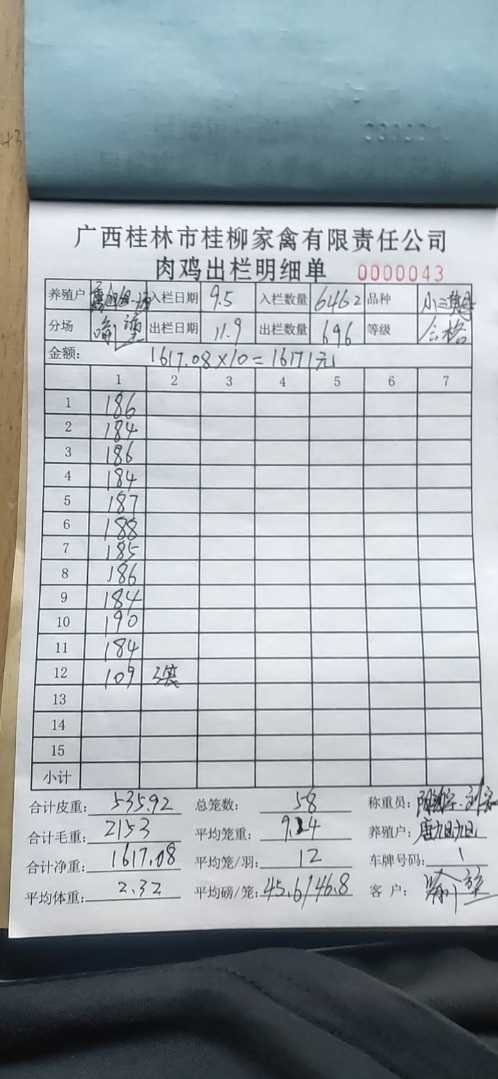 广西桂林市桂柳家禽有限责任公司
肉鸡出栏明细单 0000043
养殖户 入栏日期 9.5 入栏数量 6462 品种
分场 出栏日期 11.9 出栏数量 696 等级 合格
金额: 1617.08×10=16171元
1 2 3 4 5 6 7
1 186
2 184
3 186
4 184
5 187
6 188
7 185
8 186
9 184
10 190
11 184
12 109
13
14
15
小计
合计皮重: 535.92 总笼数: 58 称重员:
合计毛重: 2153 平均笼重: 9.24 养殖户:
合计净重: 1617.08 平均笼/羽: 12 车牌号码:
平均体重: 2.32 平均磅/笼: 45.6/46.8 客户: